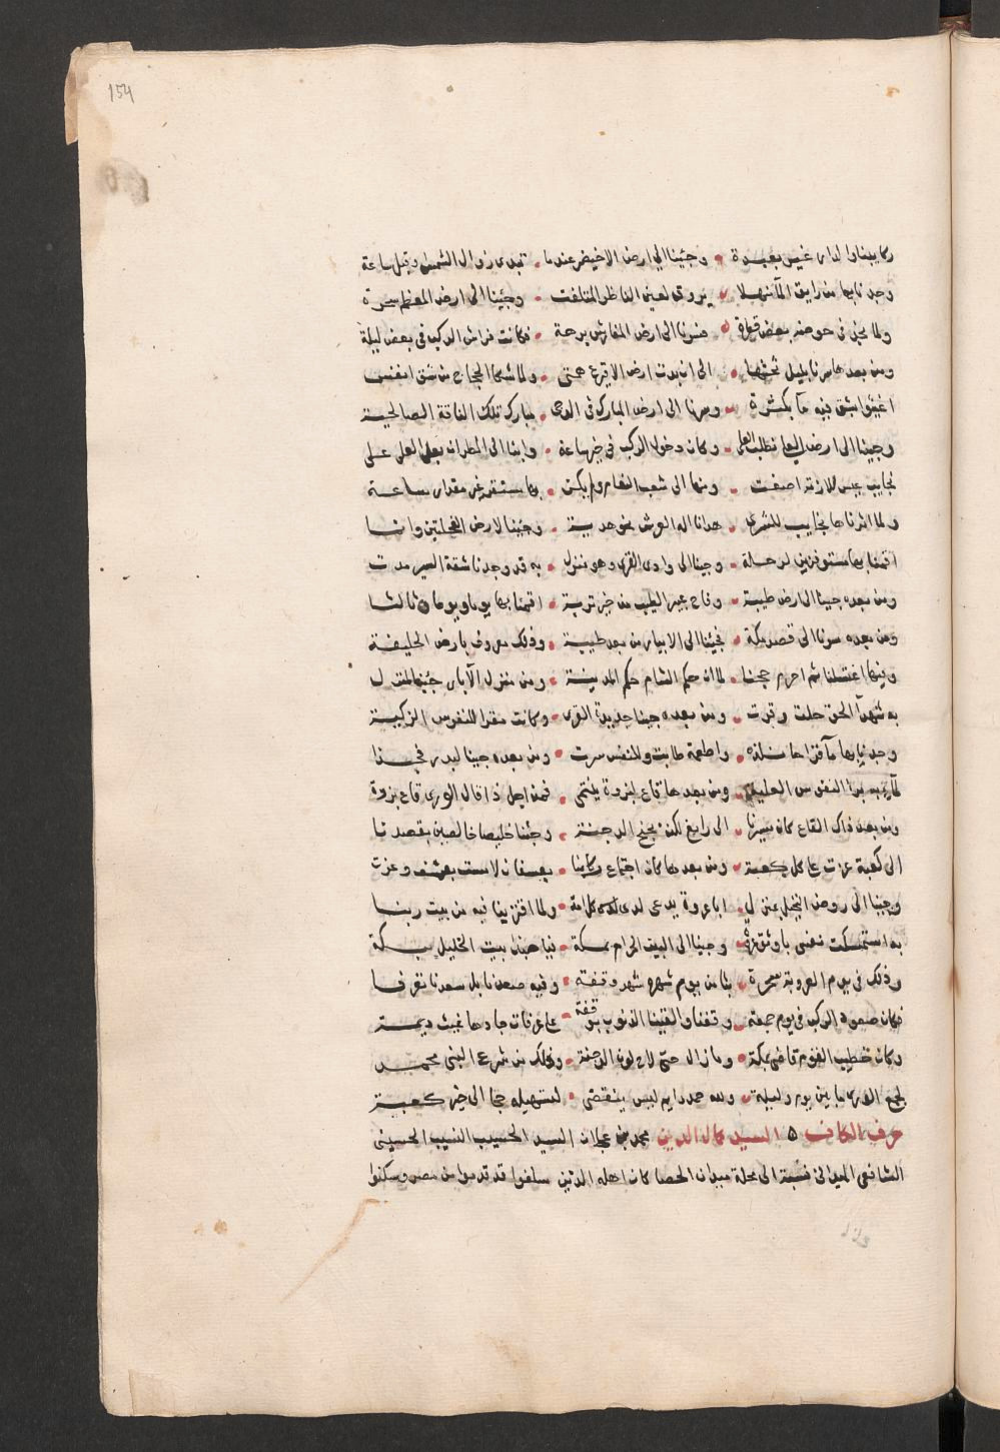 154
ركابينا والدار غير بعيدة • وجئنا الى ارض الاخيضر عندما • تبدى زوال الشمس وقبل ساعة
وجدنا بها من رايق المآ منهلا • يروق لعين الناظر المتلفت • وجئنا الى ارض المعظم بحرة
ولما يكن في حوضه بعض قطرة • فسرنا الى ارض المفارش برحة • فكانت فراش الركب في بعض ليلة
ومن بعدها سرنا بليل نحثها • الى ان بدت ارض الاقيرع همتى • ولما شكا الحجاج من شق انفس
اغيثوا بشق فيه مآ بكثرة • وسرنا الى ارض المبارك في الدجى • مبارك تلك الناقة الصالحية
وجينا الى ارض العلا نطلب العلى • وكان دخول الركب في خير ساعة • وابنا الى المطران بعد العلى على
نجايب عيس للازمة اصغت • ومنها الى شعب النعام ولم يكن • بها مستقر غير مقدار ساعة
ولما اثرناها نجايب للسرى • هدانا اله العرش نحو هدية • وجئنا لارض النخلتين واننا
اقمنا بها مستوفزين لرحلة • وجينا الى وادى القرى وهو منزل • به قد وجدنا شقة السير مدت
ومن بعده جينا الى ارض طيبة • وفاح عبير الطيب من خير تربة • اقمنا بها يوما ويوما وثالثا
ومن بعده سرنا الى قصد مكة • فجئنا الى الابيار من بعد طيبة • وذلك معروف بارض الحليفة
وفيها اغتسلنا ثم احرم حجنا • لما ان حكم الشام حكم المدينة • ومن منزل الآبار جئنا لمنزل
به شهدآ الحق حلت وقرت • ومن بعده جينا جديدة القرى • وكانت مقرا للنفوس الزكية
وجدنا بها مآ قراحا نلذه • واطعمة طابت وللنفس سرت • ومن بعده جينا لبدر فحبذا
لمآ به برا النفوس العليلة • ومن بعدها قاع لبزوة ينتمى • فمن اجل ذا قال الورى قاع بزوة
ومن بعد ذاك القاع كان مسيرنا • الى رابغ لكن بجنح الدجنة • وجئنا خليصا خالصين بقصدنا
الى كعبة عزت على كل كعبة • ومن بعدها كان اجتماع ركابنا • بعسفان لا مست بعسف وعزت
وجينا الى روض النخيل بمنزل • ابا عروة يدعى لدى كل امة • ولما اقتربنا فيه من بيت ربنا
به استمسكت نفسى باوثق عروة • وجينا الى البيت الحرام بمكة • فيا حبذا بيت الخليل بمكة
وذلك في يوم العروبة بحرة • بثامن يوم شهره شهر وقفة • وفيه صعدنا بل سعدنا تعرفا
فكان صعود الركب في يوم جمعة • وقفنا والقينا الذنوب بوقفة • على عرفات جادها غيث ديمة
وكان خطيب القوم قاضى مكة • وما زال حتى لاح لون الدجنة • وذلك من شرع النبى محمد
لجمع الورى ما بين يوم وليلة • ولله حمد دايم ليس ينقضى • لتسهيله حجا الى خير كعبة
حرف الكاف ٥ السيد كمال الدين محمد بن عجلان السيد الحسيب النسيب الحسينى
الشافعى الميدانى نسبة الى محلة ميدان الحصا كان اهله الذين سلفوا قد قدموا من مصر وسكنوا